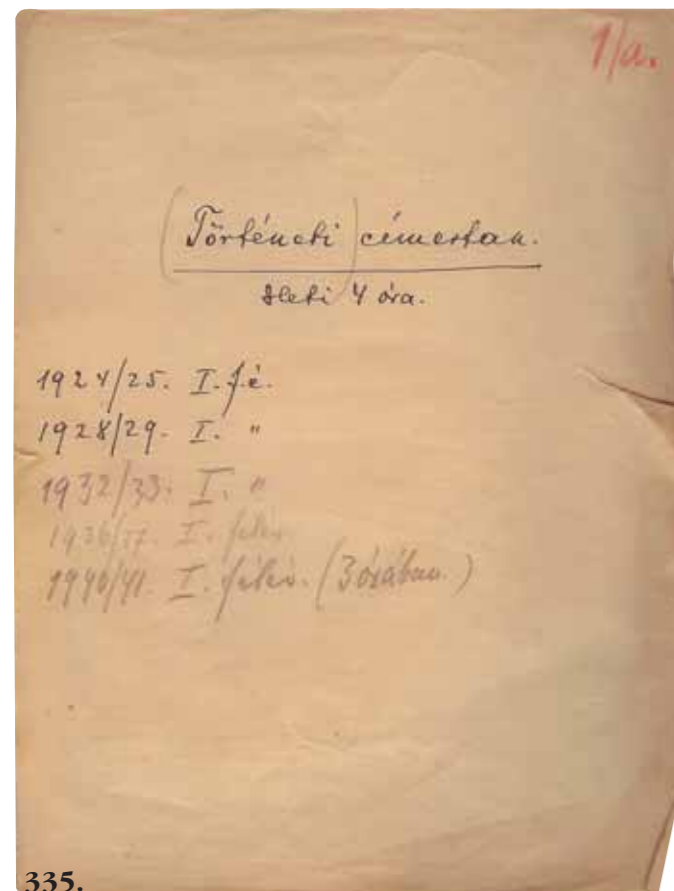 1/a.
(Történeti) címertan.
Heti 4 óra.
1924/25. I. f.é.
1928/29. I. "
1932/33. I. "
1936/37. I. félév.
1940/41. I. félév. (3 órában.)
335.